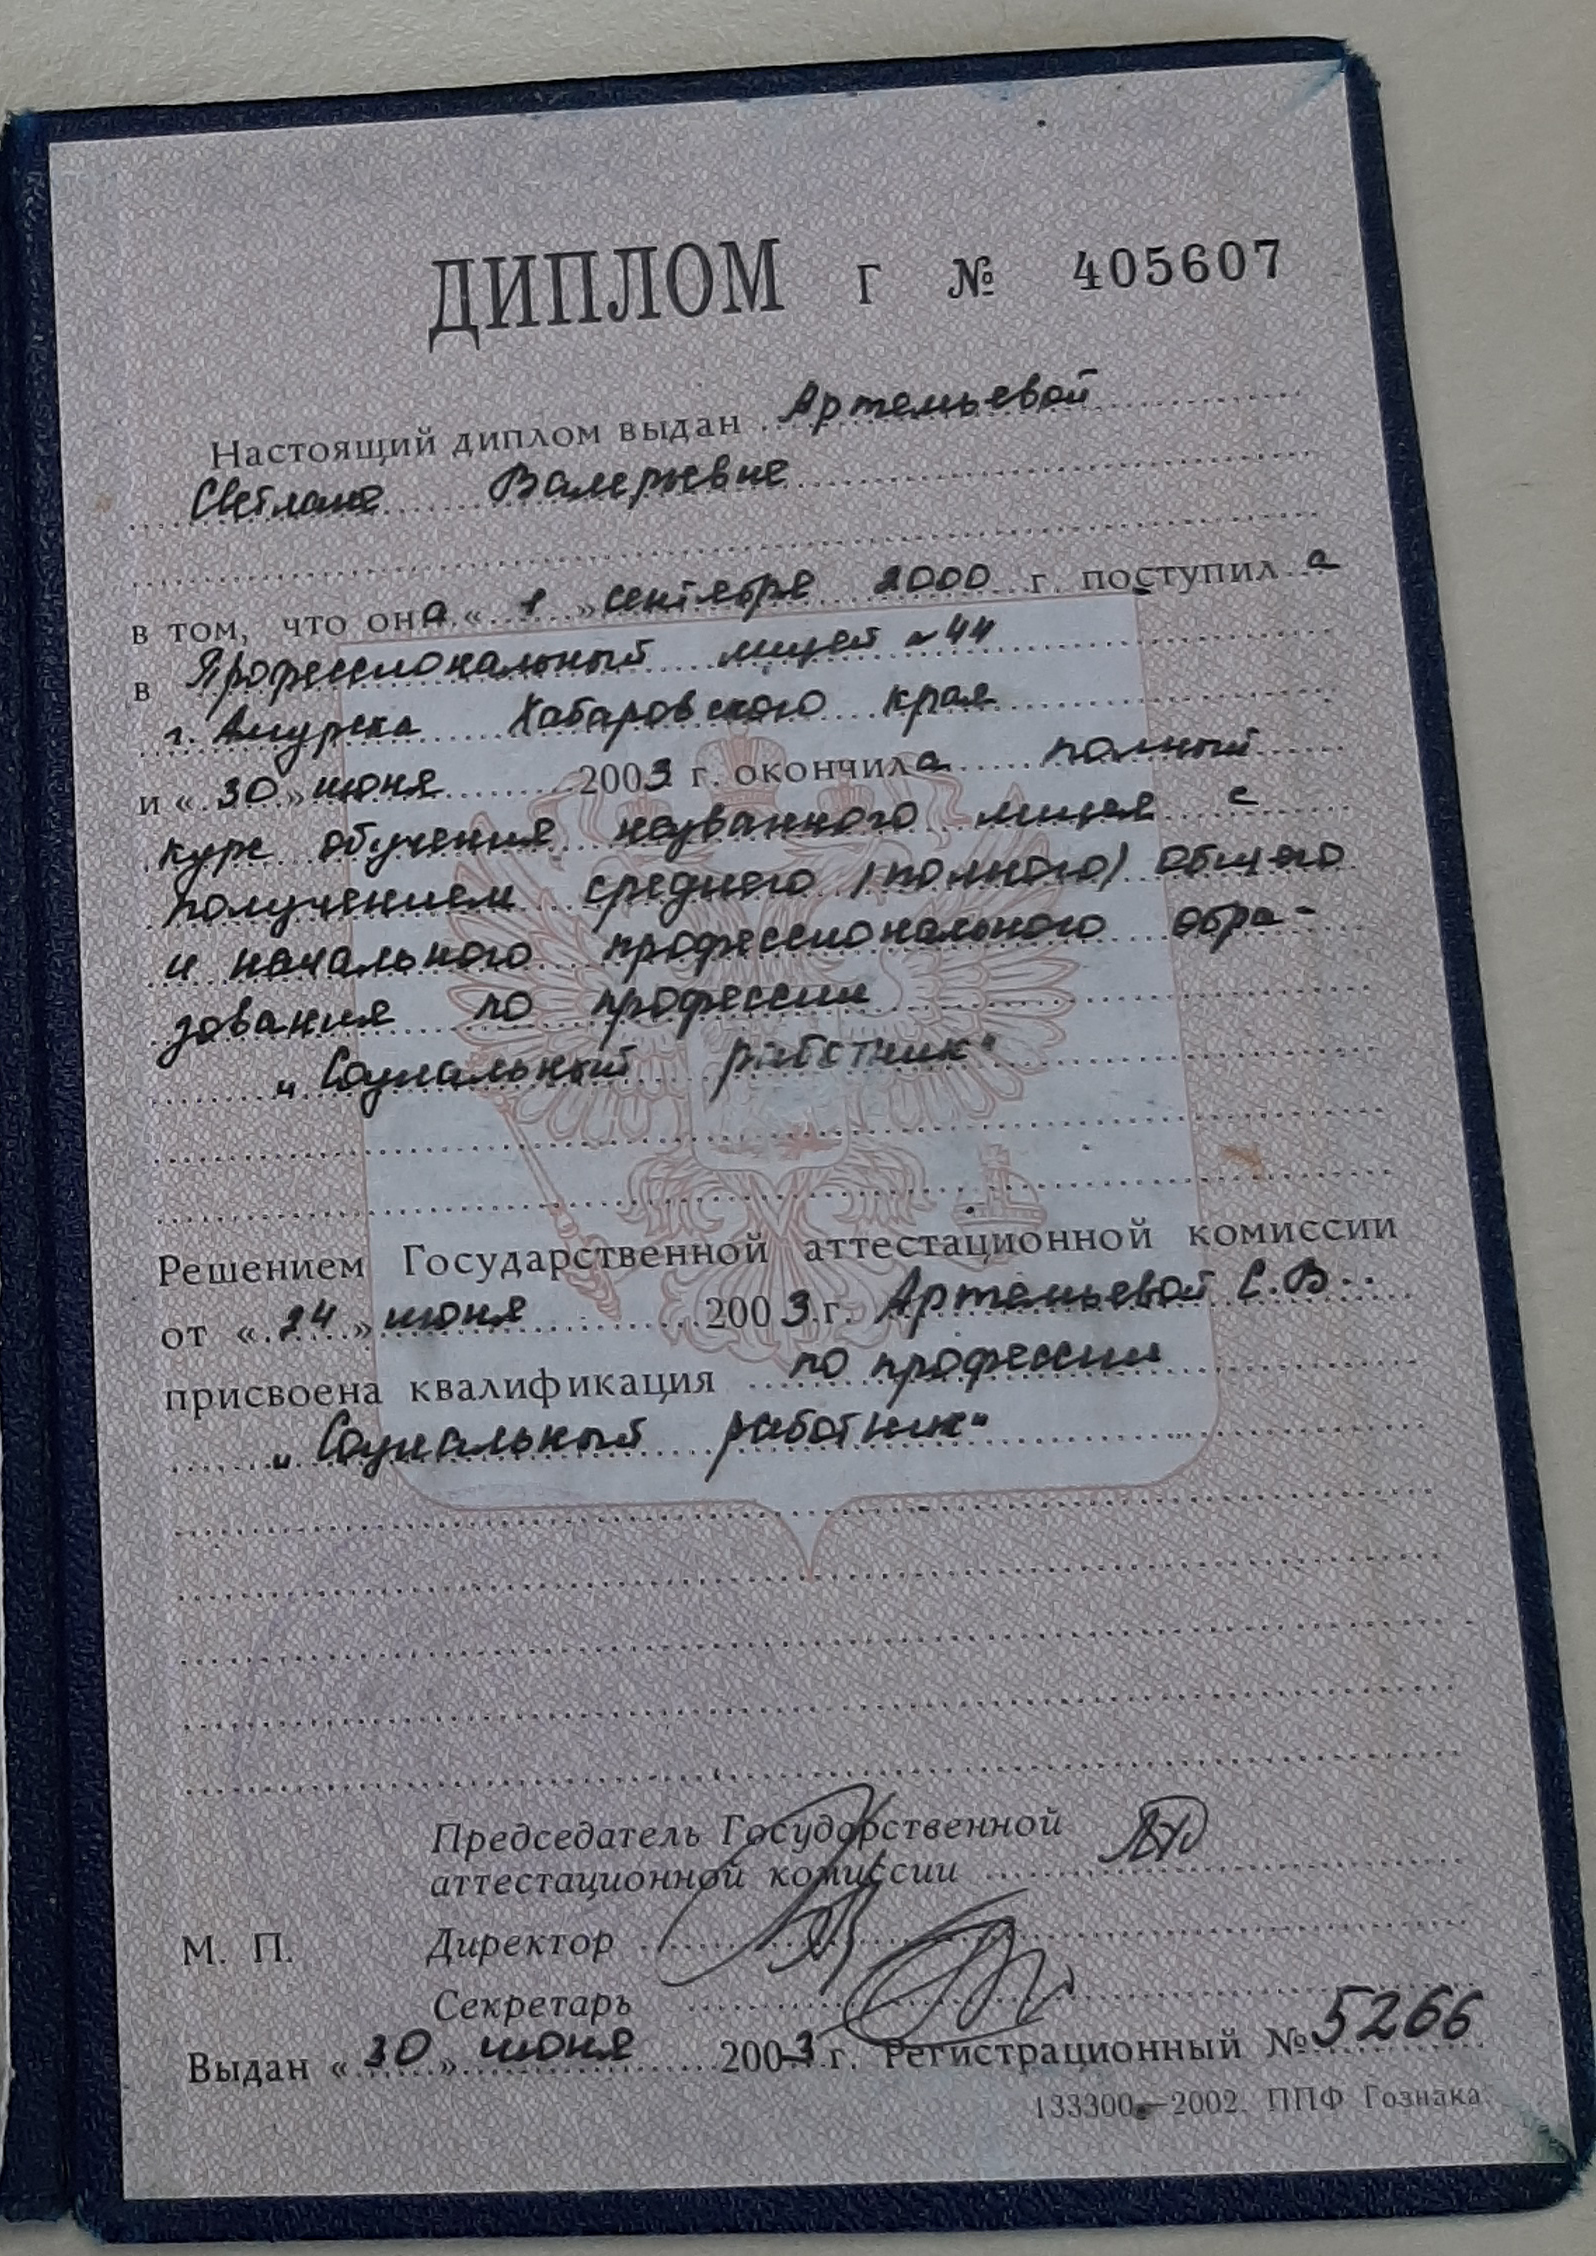 ДИПЛОМ Г № 405607
Настоящий диплом выдан Артемьевой
Светлане Валерьевне
в том, что она « 1 » сентября 2000 г. поступила
в Профессиональный лицей №44
г. Амурска Хабаровского края
и « 30 » июня 2003 г. окончила полный
курс обучения названного лицея с
получением среднего (полного) общего
и начального профессионального обра-
зования по профессии
„Социальный работник"
Решением Государственной аттестационной комиссии
от « 24 » июня 2003 г. Артемьевой С.В.
присвоена квалификация по профессии
„Социальный работник"
Председатель Государственной
аттестационной комиссии
М. П. Директор
Секретарь
Выдан « 30 » июня 2003 г. Регистрационный № 5266
133300—2002. ППФ Гознака.